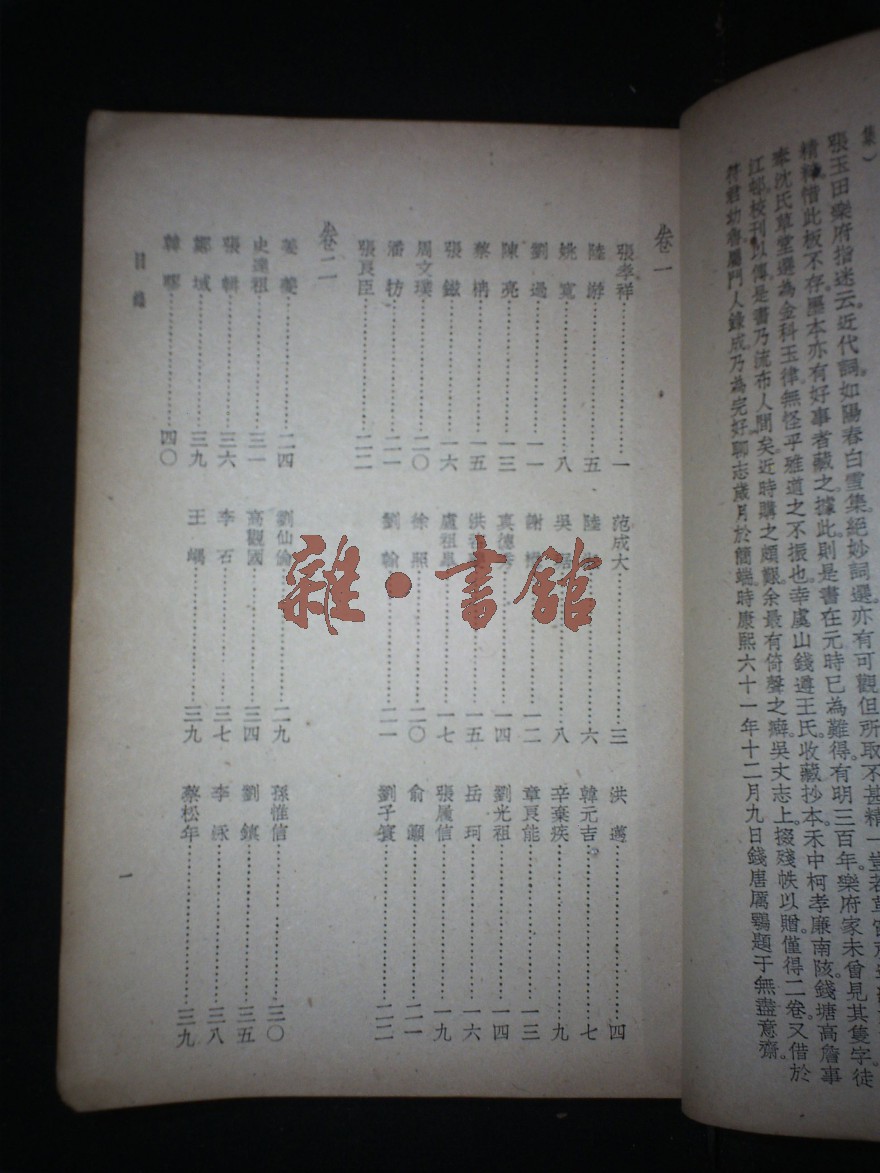 集）
張玉田樂府指迷云。近代詞如陽春白雪集絕妙詞選。亦有可觀。但所取不甚精一。豈若草窗所選
精粹。惜此板不存。墨本亦有好事者藏之。據此。則是書在元時已為難得。有明三百年。樂府家未曾見其隻字。徒
奉沈氏草堂選為金科玉律。無怪乎雅道之不振也。幸虞山錢遵王氏收藏抄本。禾中柯孝廉南陔。錢塘高詹事
江邨校刊以傳。是書乃流布人間矣。近時購之頗艱。余最有倚聲之癖。吳丈志上掇殘帙以贈。僅得二卷。又借於
符君幼魯。屬門人錄成。乃為完好。聊志歲月於簡端。時康熙六十一年十二月九日。錢唐厲鶚題于無盡意齋。
卷一
張孝祥……一 范成大……三 洪邁……四
陸游……五 陸……六 韓元吉……七
姚寬……八 吳琚……八 辛棄疾……九
劉過……一一 謝懋……一二 章良能……一三
陳亮……一三 真德秀……一四 劉光祖……一四
蔡柟……一五 洪咨夔……一五 岳珂……一六
張鎡……一六 盧祖皋……一七 張履信……一九
周文璞……二〇 徐照……二〇 俞灝……二一
潘牥……二一 劉翰……二一 劉子寰……二二
張良臣……二二
卷二
姜夔……二四 劉仙倫……二九 孫惟信……三〇
史達祖……三一 高觀國……三四 劉鎮……三五
張輯……三六 李石……三七 李泳……三八
鄭域……三九 王嵎……三九 蔡松年……三九
韓疁……四〇
目錄
一
雜·書館